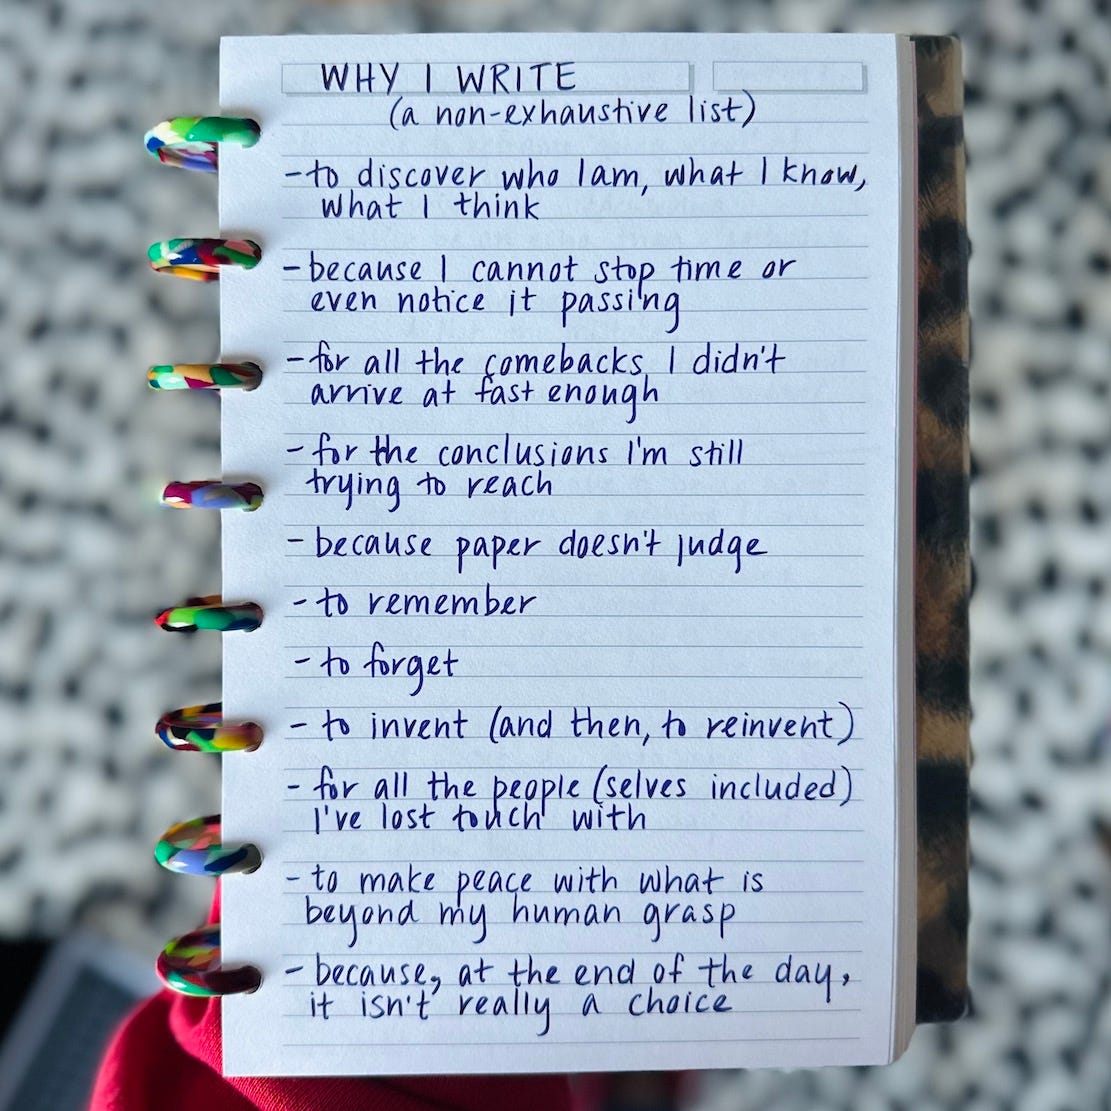 WHY I WRITE
(a non-exhaustive list)
- to discover who I am, what I know,
what I think
- because I cannot stop time or
even notice it passing
- for all the comebacks I didn't
arrive at fast enough
- for the conclusions I'm still
trying to reach
- because paper doesn't judge
- to remember
- to forget
- to invent (and then, to reinvent)
- for all the people (selves included)
I've lost touch with
- to make peace with what is
beyond my human grasp
- because, at the end of the day,
it isn't really a choice